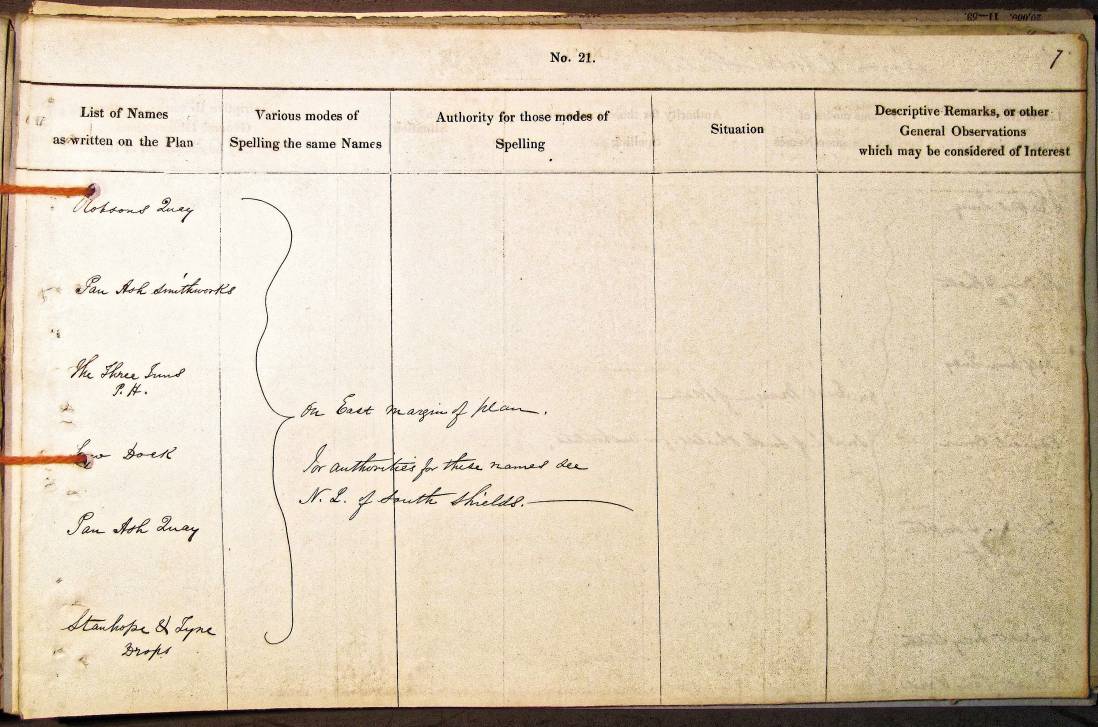 20,000. 11—53.
No. 21.
7
List of Names
as written on the Plan
Various modes of
Spelling the same Names
Authority for those modes of
Spelling
Situation
Descriptive Remarks, or other
General Observations
which may be considered of Interest
Robsons Quay
Pan Ash Smithworks
The Three Tuns
P. H.
Low Dock
Pan Ash Quay
Stanhope & Tyne
Drops
On East margin of plan.
For authorities for these names see
N. L. of South Shields.